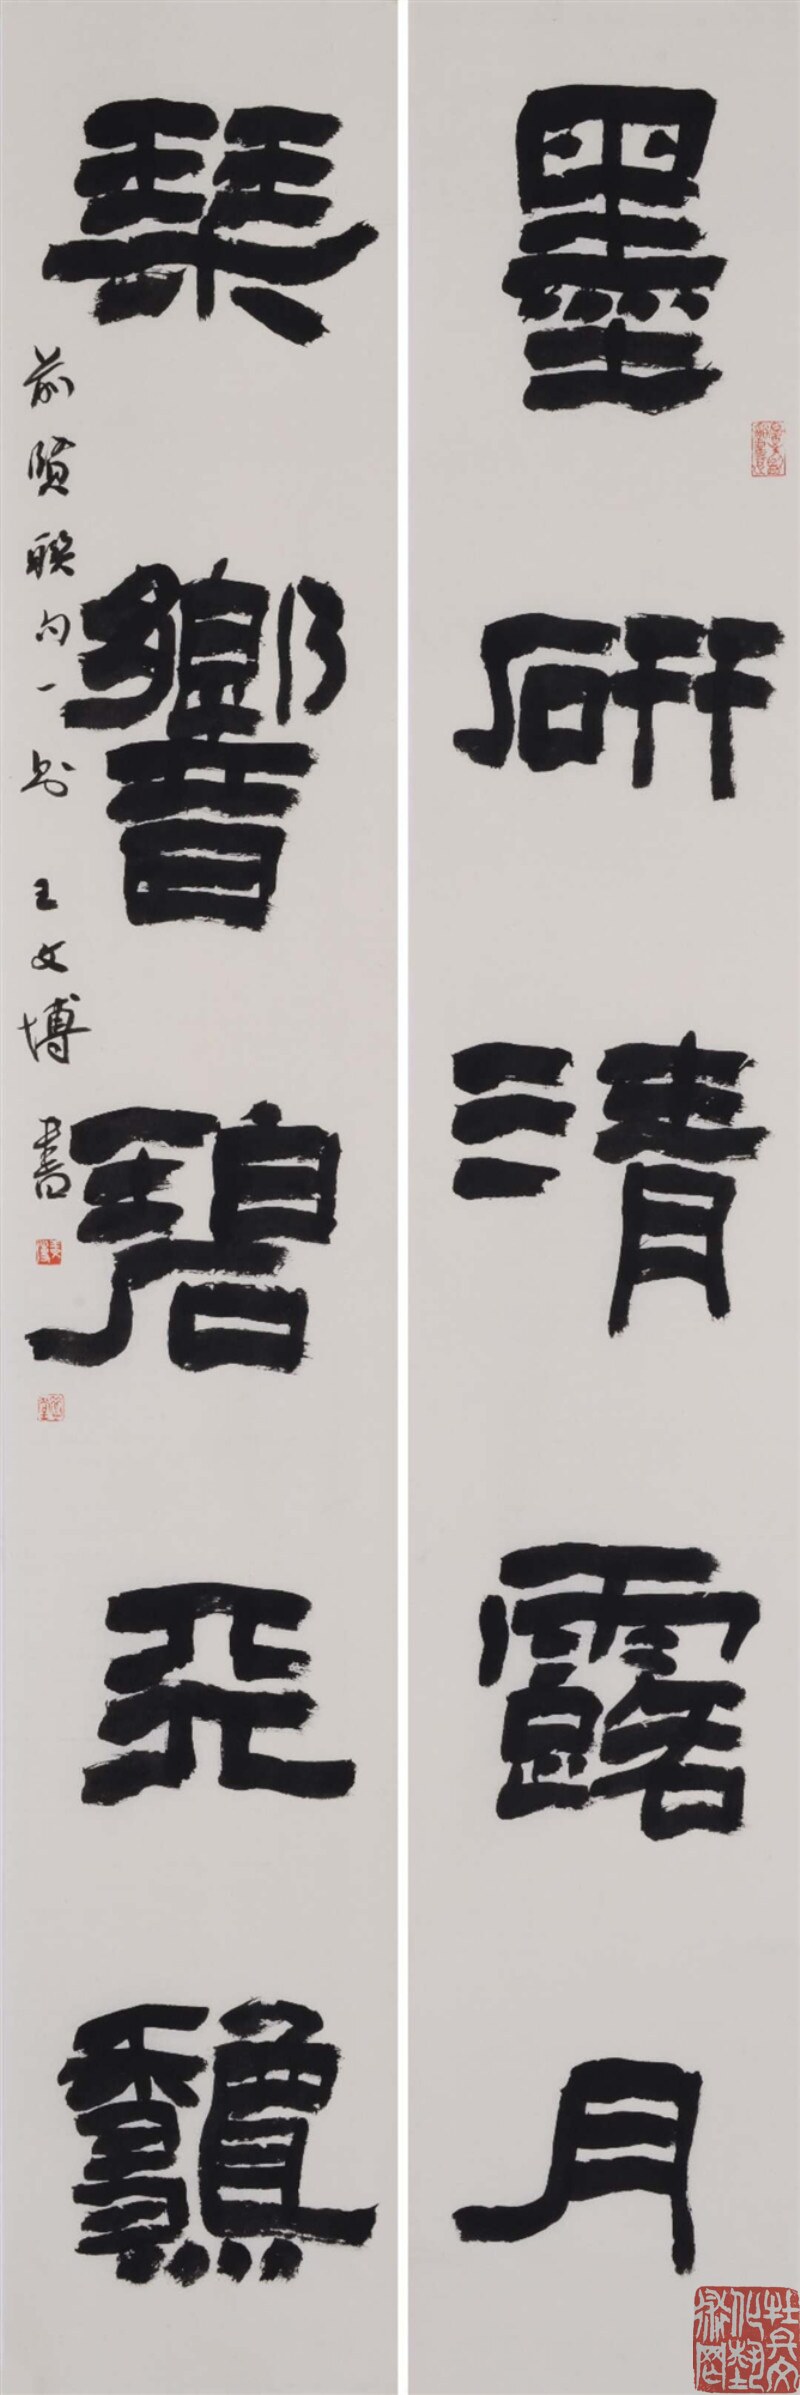 墨研清露月
琴響碧天龝
前賢聯句一則 王文博書